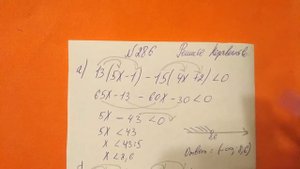 №286 Решите неравенство
а) 13(5x-1) - 15(4x+2)<0
65x-13 - 60x-30<0
5x - 43 <0
5x <43
x <43:5
x <8,6
8,6
Ответ: (-∞; 8,6)